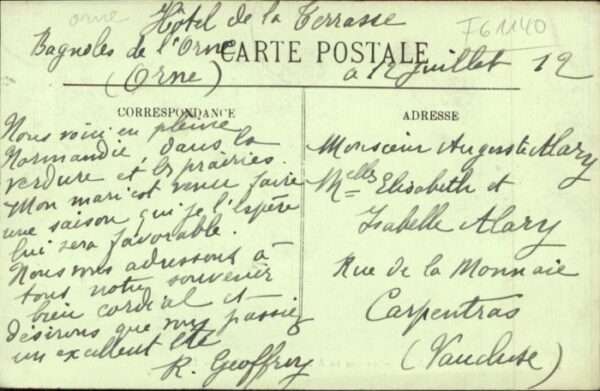 orne
Hôtel de la Terrasse
F61140
Bagnoles de l'Orne
(Orne)
CARTE POSTALE
a 12 Juillet 12
CORRESPONDANCE
Nous voici en pleine
Normandie, dans la
verdure et les prairies.
Mon mari est venu faire
une saison qui je l'espère
lui sera favorable.
Nous vous adressons à
tous notre souvenir
bien cordial et
désirons que vous passiez
un excellent été
R. Geoffroy
ADRESSE
Monsieur Auguste Alary
Melles Elisabeth et
Isabelle Alary
Rue de la Monnaie
Carpentras
(Vaucluse)